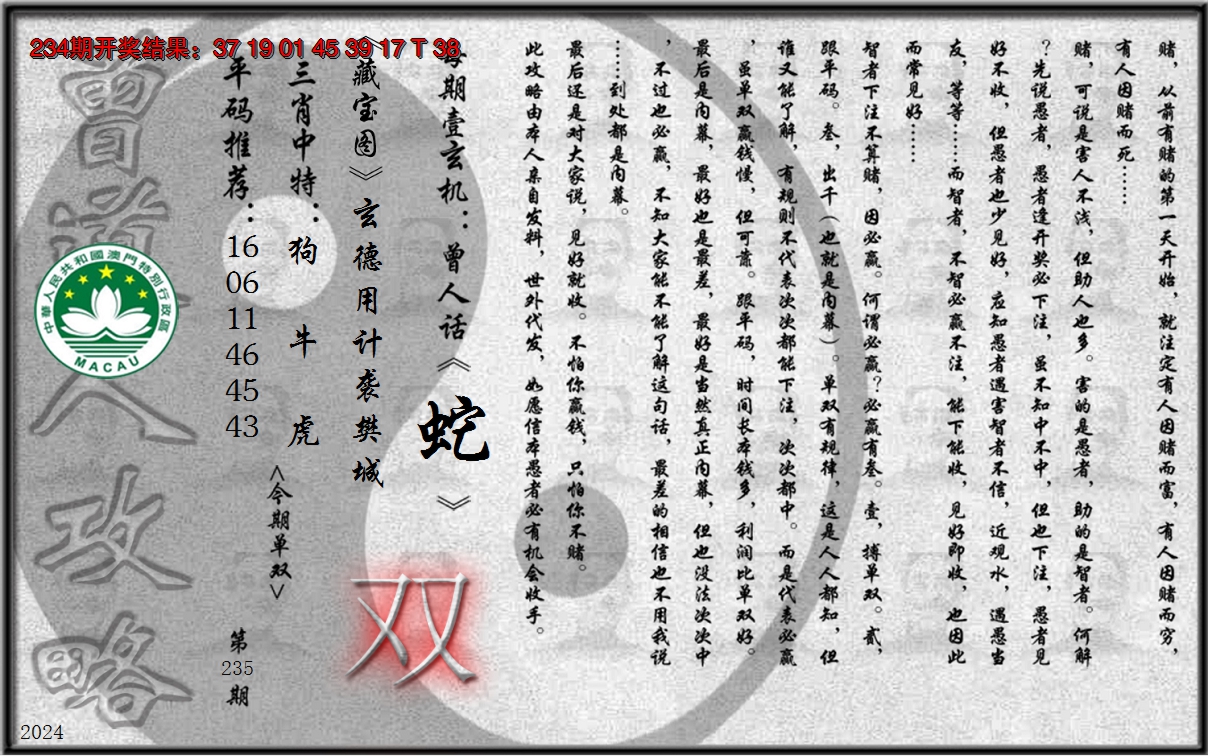 234期开奖结果：37 19 01 45 39 17 T 38
赌，从前有赌的第一天开始，就注定有人因赌而富，有人因赌而穷，
有人因赌而死……
赌，可说是害人不浅，但助人也多。害的是愚者，助的是智者。何解
？先说愚者，愚者逢开奖必下注，虽不知中不中，但也下注，愚者见
好不收，但愚者也少见好，应知愚者遇害智者不信，近观水，遇愚当
友，等等……而智者，不智必赢不注，能下能收，见好即收，也因此
而常见好……
智者下注不算赌，因必赢。何谓必赢？必赢有叁。壹，搏单双。贰，
跟平码。叁，出千（也就是内幕）。单双有规律，这是人人都知，但
谁又能了解，有规则不代表次次都能下注，次次都中。而是代表必赢
，虽单双赢钱慢，但可靠。跟平码，时间长本钱多，利润比单双好。
最后是内幕，最好也是最差，最好是当然真正内幕，但也没法次次中
，不过也必赢，不知大家能不能了解这句话，最差的相信也不用我说
……到处都是内幕。
最后还是对大家说，见好就收。不怕你赢钱，只怕你不赌。
此攻略由本人亲自发料，世外代发，如愿信本愚者必有机会收手。
每期壹玄机：曾人话《蛇》
《藏宝图》玄德用计袭樊城
双
三肖中特：狗 牛 虎
<今期单双>
平码推荐：16 06 11 46 45 43
第235期
曾道人攻略
中華人民共和國澳門特別行政區
MACAU
2024